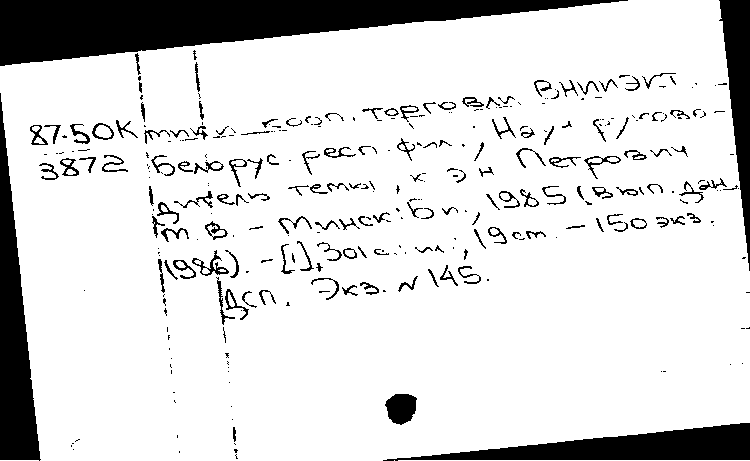 87-50К тики кооп. торговли ВНИИЭКТ.
3872 Белорус. респ. фил.; Науч руково-
дитель темы, к э н Петрович
М. В. - Минск: Б и., 1985 (Вып. дан.
1986). - [1], 301 с.: ил.; 19 см. - 150 экз.
ДСП. Экз. N 145.